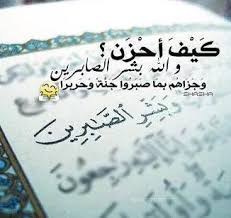 كَيْفَ أحْزَن ؟
و الله بشر الصابرين
وَجَزَاهُم بِمَا صَبَرُوا جَنَّةً وَحَرِيرا
SHASHA
وَبَشِّرِ الصَّابِرِينَ